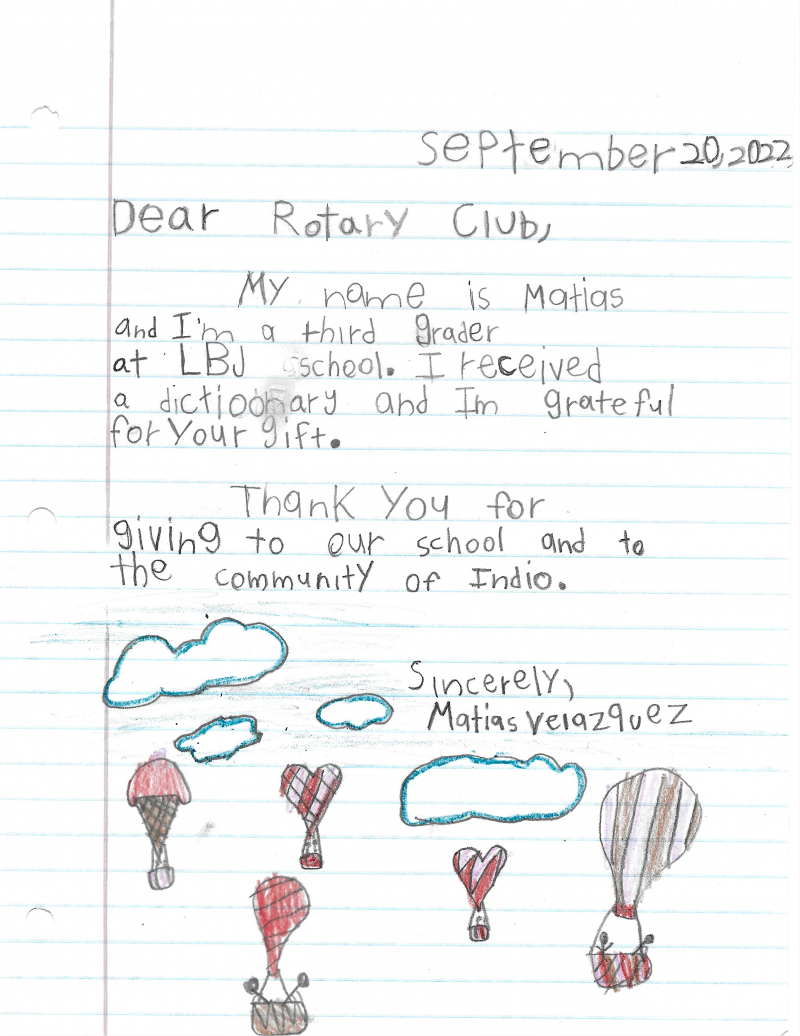 September 20, 2022
Dear Rotary Club,
My name is Matias
and I'm a third grader
at LBJ school. I received
a dictioonary and Im grateful
for your gift.
Thank You for
giving to our school and to
the community of Indio.
Sincerely,
Matias Velazquez